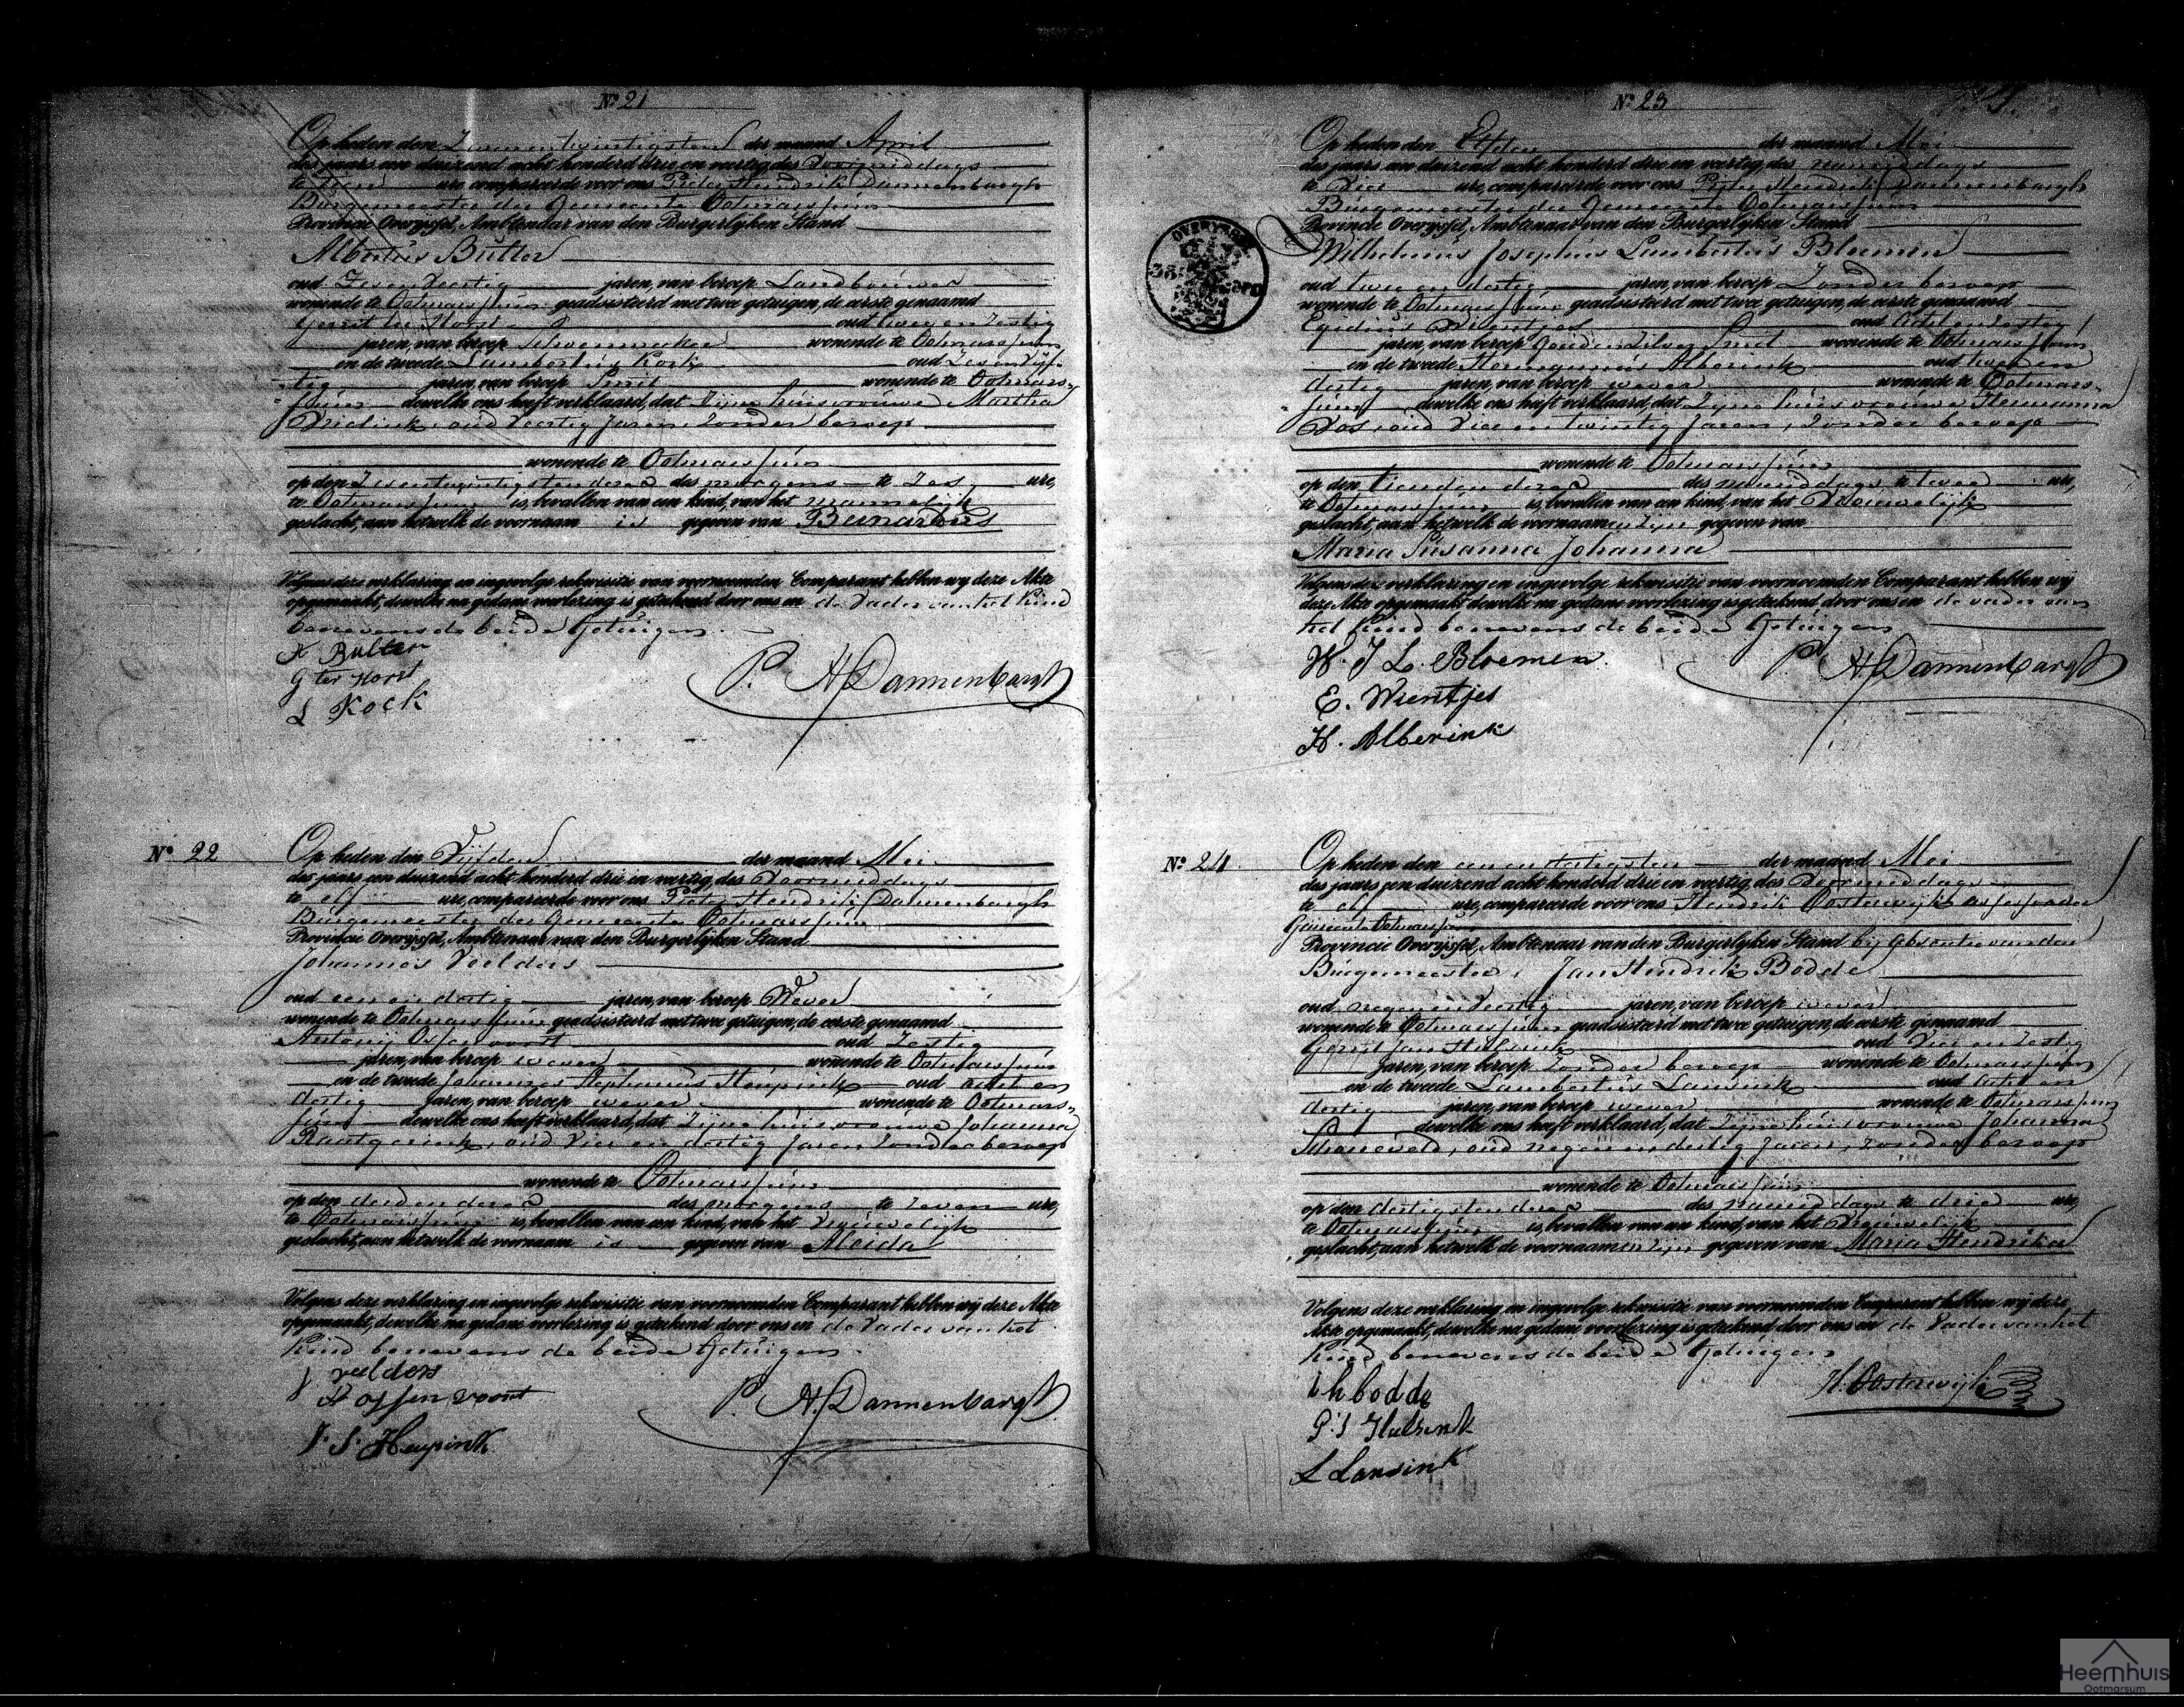 N.º 21
Op heden den Zevenentwintigsten der maand April
des jaars een duizend acht honderd drie en veertig, des Voormiddags
te tien ure, compareerde voor ons Pieter Hendrik Dannenbargh
Burgemeester der Gemeente Ootmarssum
Provincie Overijssel, Ambtenaar van den Burgerlijken Stand
Albertus Bulter
oud Zes en Veertig jaren, van beroep Landbouwer
wonende te Ootmarssum geadsisteerd met twee getuigen, de eerste genaamd
Gerrit ter Horst oud twee en Zestig
jaren, van beroep Schoenmaker wonende te Ootmarssum
en de tweede Lambertus Kock oud Zes en Vijf-
tig jaren, van beroep Smit wonende te Ootmars-
sum dewelke ons heeft verklaard, dat Zijne huisvrouwe Martha
oud Veertig Jaren, Zonder beroep
wonende te Ootmarssum
op den dezer des morgens te Zes ure,
te Ootmarssum is, bevallen van een kind, van het mannelijk
geslacht, aan hetwelk de voornaam is gegeven van Bernardus
Volgens deze verklaring en ingevolge rekwisitie van voornoemden Comparant hebben wij deze Akte
opgemaakt, dewelke na gedane voorlezing is getekend door ons en de Vader van het Kind
benevens de beide Getuigen.
A Bulter
G ter Horst
L Kock
P. H. Dannenbargh
N.º 22
Op heden den Vijfden der maand Mei
des jaars een duizend acht honderd drie en veertig, des Voormiddags
te elf ure, compareerde voor ons Pieter Hendrik Dannenbargh
Burgemeester der Gemeente Ootmarssum
Provincie Overijssel, Ambtenaar van den Burgerlijken Stand
Johannes Veelders
oud een en dertig jaren, van beroep Wever
wonende te Ootmarssum geadsisteerd met twee getuigen, de eerste genaamd
Antonij Ossenvoort oud Zestig
jaren, van beroep wever wonende te Ootmarssum
en de tweede Johannes Stephanus Heupink oud acht en
dertig jaren, van beroep wever wonende te Ootmars-
sum dewelke ons heeft verklaard, dat Zijne huisvrouwe Johanna
Raatgerink, oud Vier en dertig Jaren Zonder beroep
wonende te Ootmarssum
op den derden dezer des morgens te Zeven ure,
te Ootmarssum is, bevallen van een kind, van het Vrouwelijk
geslacht, aan hetwelk de voornaam is gegeven van Aleida
Volgens deze verklaring en ingevolge rekwisitie van voornoemden Comparant hebben wij deze Akte
opgemaakt, dewelke na gedane voorlezing is getekend door ons en de Vader van het
Kind benevens de beide Getuigen.
J veelders
A ossenvoort
J. S. Heupink
P. H. Dannenbargh
N.º 23
Op heden den Elfden der maand Mei
des jaars een duizend acht honderd drie en veertig, des namiddags
te Vier ure, compareerde voor ons Pieter Hendrik Dannenbargh
Burgemeester der Gemeente Ootmarssum
Provincie Overijssel, Ambtenaar van den Burgerlijken Stand
Wilhelmus Josephus Lambertus Bloemen
oud twee en dertig jaren, van beroep Zonder beroep
wonende te Ootmarssum geadsisteerd met twee getuigen, de eerste genaamd
Egidius Wientjes oud acht en Zestig
jaren, van beroep Goud en Zilver Smit wonende te Ootmarssum
en de tweede Hermannus Alberink oud twee en
dertig jaren, van beroep wever wonende te Ootmars-
sum dewelke ons heeft verklaard, dat Zijne huisvrouwe Hermanna
Vos, oud Vier en twintig Jaren, Zonder beroep
wonende te Ootmarssum
op den tienden dezer des namiddags te twee ure,
te Ootmarssum is, bevallen van een kind, van het Vrouwelijk
geslacht, aan hetwelk de voornaamen Zijn gegeven van
Maria Susanna Johanna
Volgens deze verklaring en ingevolge rekwisitie van voornoemden Comparant hebben wij
deze Akte opgemaakt dewelke na gedane voorlezing is getekend door ons en de vader van
het Kind benevens de beide Getuigen
W. J L. Bloemen.
E. Wientjes
H. Alberink
P. H. Dannenbargh
OVERYSSEL
N.º 24
Op heden den een en dertigsten der maand Mei
des jaars een duizend acht honderd drie en veertig, des Voormiddags
te elf ure, compareerde voor ons Hendrik Oosterwijk assessor der
Gemeente Ootmarssum
Provincie Overijssel, Ambtenaar van den Burgerlijken Stand bij absentie van den
Burgemeester, Jan Hendrik Bodde
oud negen en Veertig jaren, van beroep wever
wonende te Ootmarssum geadsisteerd met twee getuigen, de eerste genaamd
Gerrit Jan Hulsink oud Vier en Zestig
jaren, van beroep Zonder beroep wonende te Ootmarssum
en de tweede Lambertus Lansink oud acht en
dertig jaren, van beroep wever wonende te Ootmarssum
dewelke ons heeft verklaard, dat Zijne huisvrouwe Johanna
Schoneveld, oud negen en dertig Jaren, Zonder beroep
wonende te Ootmarssum
op den dertigsten dezer des namiddags te drie ure,
te Ootmarssum is, bevallen van een kind, van het Vrouwelijk
geslacht, aan hetwelk de voornaamen Zijn gegeven van Maria Hendrika
Volgens deze verklaring en ingevolge rekwisitie van voornoemden Comparant hebben wij deze
Akte opgemaakt, dewelke na gedane voorlezing is getekend door ons en de Vader van het
Kind benevens de beide Getuigen
i h bodde
G: J Hulsink
L Lansink
H. Oosterwijk
Heemhuis
Ootmarsum